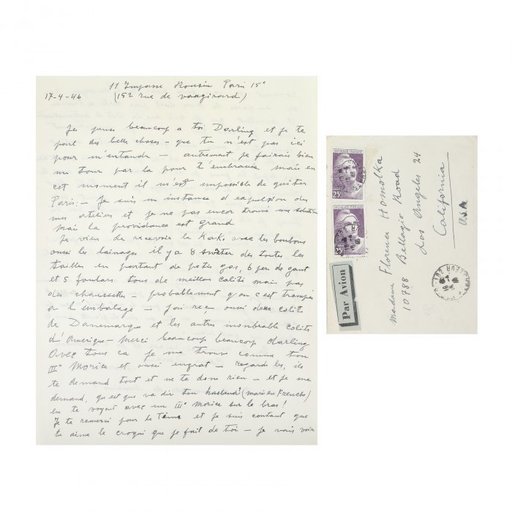 11 Impasse Ronsin Paris 15e
17-4-46 (152 rue de vaugirard)
Je pense beaucoup a toi Darling et je te
parl des belle choses - que tu n'est pas ici
pour m'entandre - autrement je fairais bien
un tour par la pour t'embrance, mais en
cet moment il m'est impossible de quiter
Paris - Je suis en instance d'expulsion de
mes atelier et je ne pas encor trouve une solution
mais la providance est grand
Je viens de recevoir le avec les bonbons
ousi le lainages il y a 8 de toutes les
taille en partant de petit gos, 6 per de gant
et 5 foulars tous de meillor calite mais pas
des chaussettes - probablement q'on c'est trompe
a l'embalage - j'en recu ousi deux colits
de Danemarque et les autres colits
d'Amerique - merci beaucoup beaucoup darling
Avec tous ca je me trouv comme ton
IIIe Morice et ousi engrat - regarde les, de
te demand tout et ne te done rien - et je me
demand, qu'est que va dir ton hasband (mari en French)
en te voyant avec un IIIe Morice sur le bras!
Je te remersi pour le Time et je suis contant que
tu aime le croqui que je fait de toi - je vais voir
Par Avion
Madame Florence Homolka
10788 Bellagio Road
Los Angeles 24
California
USA